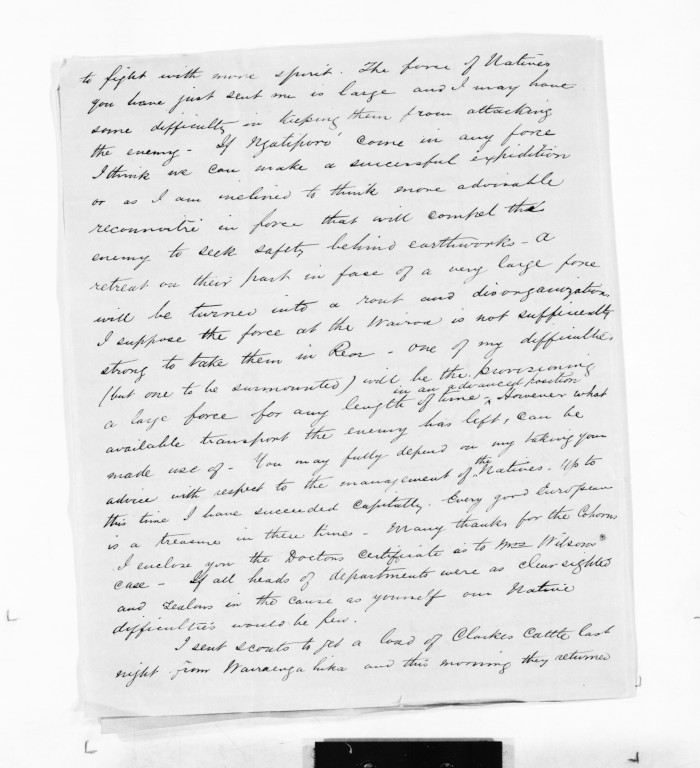 to fight with more spirit. The force of Natives
you have just sent me is large and I may have
some difficulty in keeping them from attacking
the enemy - If Ngatiporo' come in any force
I think we can make a successful expedition
or as I am inclined to think more advisable
reconnoitre in force that will compel the
enemy to seek safety behind earthworks - A
retreat on their part in face of a very large force
will be turned into a rout and disorganization.
I suppose the force at the Wairoa is not sufficiently
strong to take them in Rear - one of my difficulties
(but one to be surmounted) will be the provisioning
in an advanced position
a large force for any length of time ‸ However what
available transport the enemy has left, can be
made use of - You may fully depend on my taking your
advice with respect to the management of the Natives - Up to
this time I have succeeded capitally. Every good European
is a treasure in these times - Many thanks for the Cohorns
I enclose you the Doctors certificate as to Mrs Wilsons
case - If all heads of departments were as clear sighted
and zealous in the cause as yourself our Native
difficulties would be few.
I sent scouts to get a load of Clarkes Cattle last
night from Waerenga hika and this morning they returned